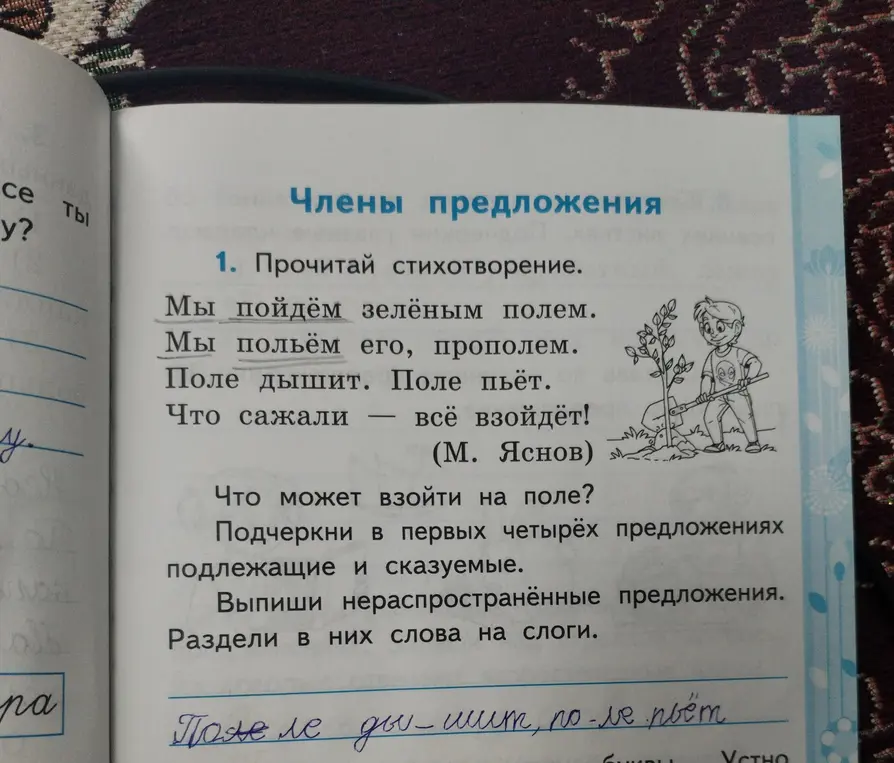 се ты
у?
у.
ра
Члены предложения
1. Прочитай стихотворение.
Мы пойдём зелёным полем.
Мы польём его, прополем.
Поле дышит. Поле пьёт.
Что сажали — всё взойдёт!
(М. Яснов)
Что может взойти на поле?
Подчеркни в первых четырёх предложениях
подлежащие и сказуемые.
Выпиши нераспространённые предложения.
Раздели в них слова на слоги.
ле ды-шит, по-ле пьёт
буквы. Устно